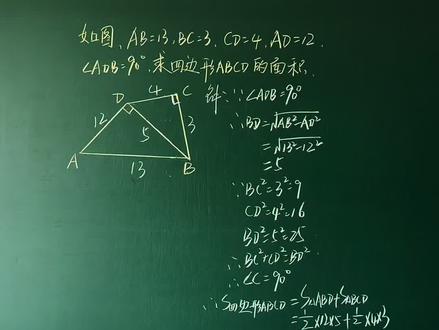 如图，AB=13，BC=3，CD=4，AD=12，
∠ADB=90°，求四边形ABCD的面积.
解：∵∠ADB=90°
∴BD=√AB²-AD²
=√13²-12²
=5
∵BC²=3²=9
CD²=4²=16
BD²=5²=25
∴BC²+CD²=BD²
∴∠C=90°
∴S四边形ABCD=S△ABD+S△BCD
=1/2×12×5+1/2×4×3
D
4
C
12
5
3
A
13
B